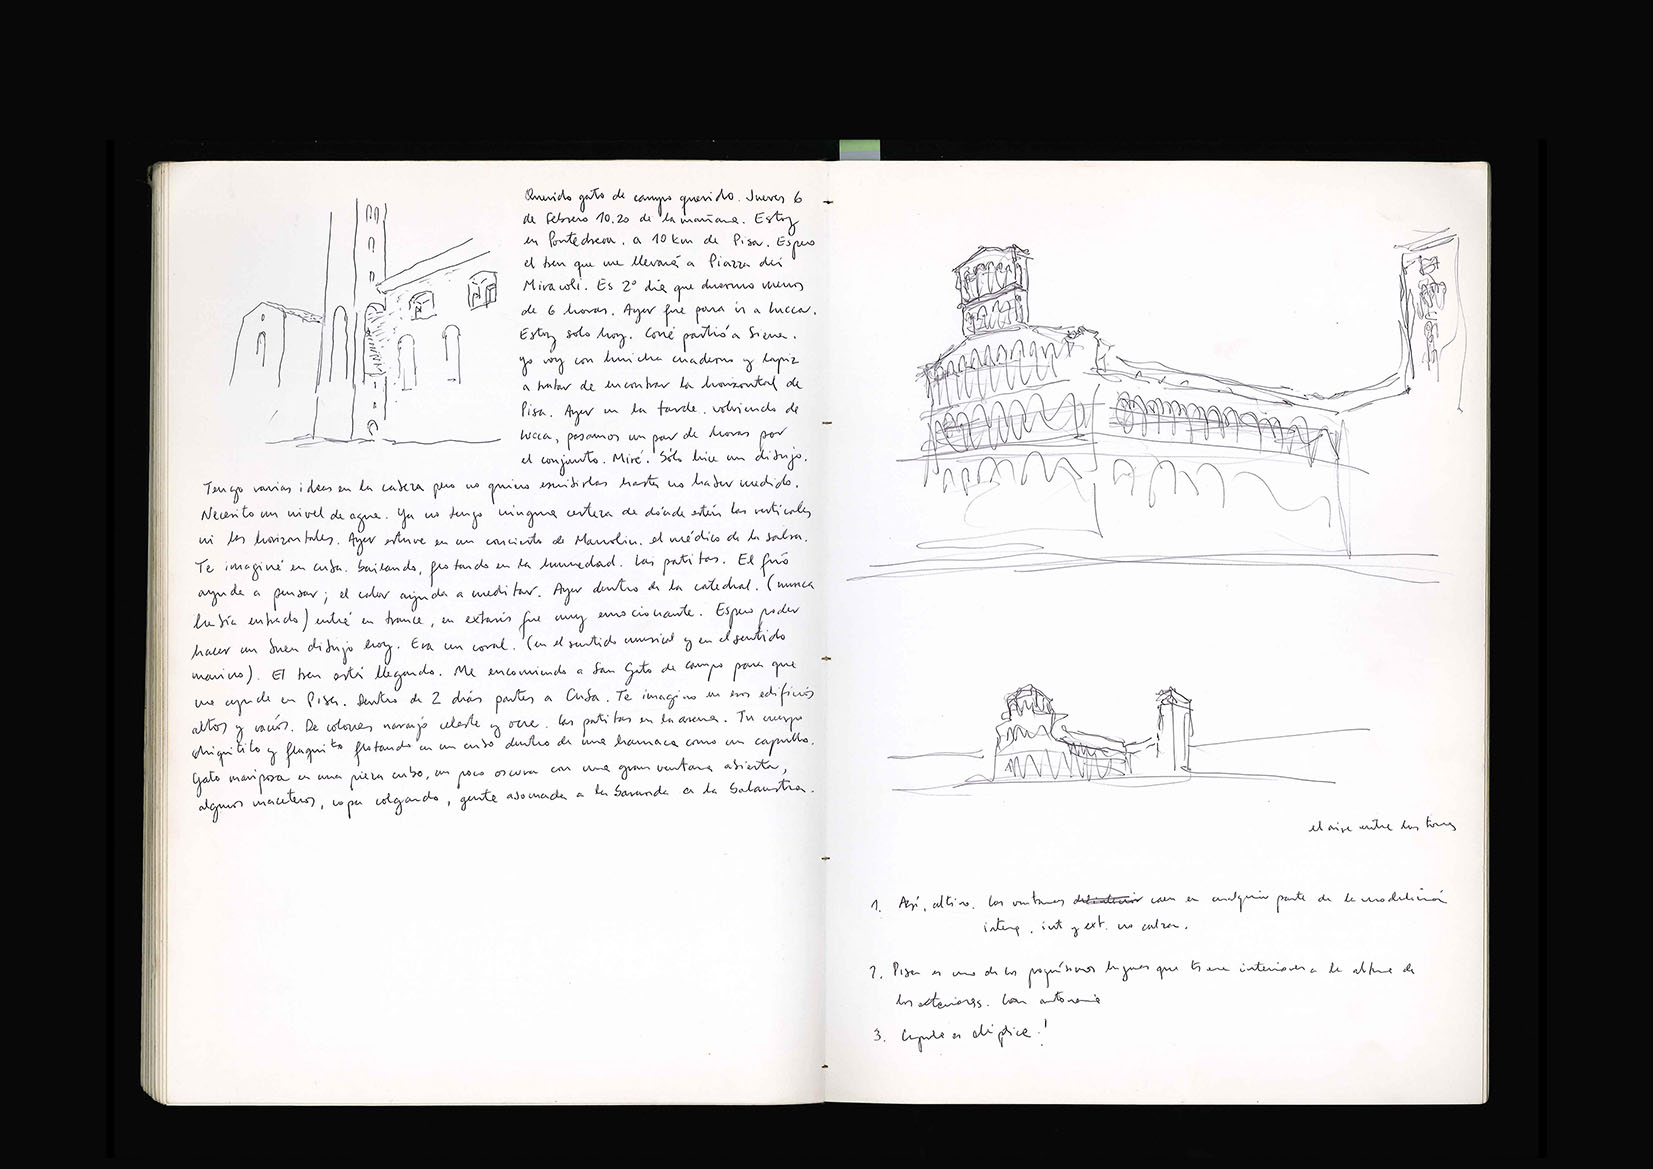 Querido gato de campo querido. Jueves 6
de febrero 10.20 de la mañana. Estoy
en Pontedreoa. a 10 km de Pisa. Espero
el tren que me llevará a Piazza dei
Miracoli. Es 2° día que duermo menos
de 6 horas. Ayer fue para ir a Lucca.
Estoy solo hoy. Coné partió a Siena.
yo voy con huincha cuaderno y lapiz
a tratar de encontrar la horizontal de
Pisa. Ayer en la tarde. volviendo de
Lucca, pasamos un par de horas por
el conjunto. Miré. Sólo hice un dibujo.
Tengo varias ideas en la cabeza pero no quiero escribirlas hasta no haber medido.
Necesito un nivel de agua. Ya no tengo ninguna certeza de dónde estén las verticales
ni las horizontales. Ayer estuve en un concierto de Manolin. el médico de la salsa.
Te imaginé en cuba. bailando, flotando en la humedad. Las patitas. El frío
ayuda a pensar; el calor ayuda a meditar. Ayer dentro de la catedral. (nunca
había entrado) entré en trance, en extasis fue muy emocionante. Espero poder
hacer un buen dibujo hoy. Era un coral. (en el sentido musical y en el sentido
marino). El tren está llegando. Me encomiendo a San Gato de campo para que
me ayude en Pisa. Dentro de 2 días partes a Cuba. Te imagino en esos edificios
altos y vacíos. De colores naranjo celeste y ocre. las patitas en la arena. Tu cuerpo
chiquitito y flaquito flotando en un cubo dentro de una hamaca como un capullo.
Gato mariposa en una pieza cubo, un poco oscura con una gran ventana abierta,
algunos maceteros, ropa colgando, gente asomada a la baranda a la balaustra.
el aire entre las torres
1. Así, altivo. Las ventanas caen en cualquier parte de la modulación
interna. int y ext. no calzan.
2. Pisa es uno de los poquísimos lugares que tiene interiores a la altura de
los exteriores. Con autonomía
3. Cupula es elíptica!